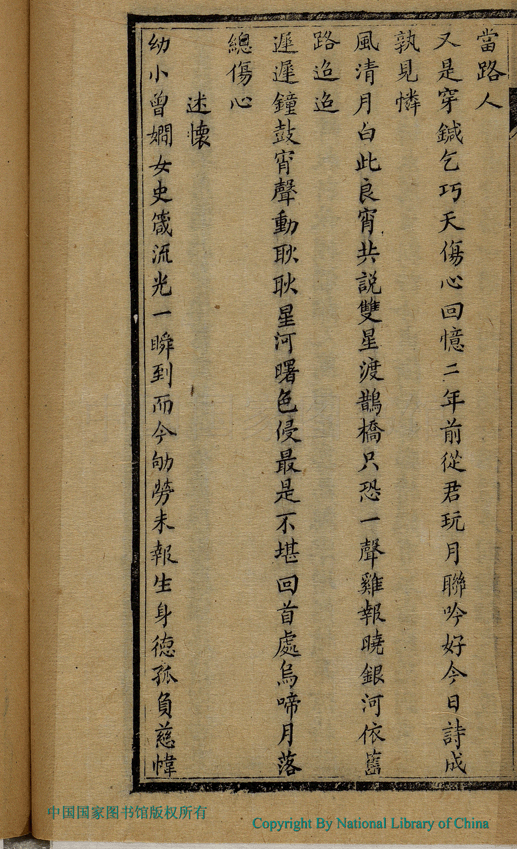 當路人
又是穿鍼乞巧天傷心回憶二年前從君玩月聯吟好今日詩成
孰見憐
風清月白此良宵共説雙星渡鵲橋只恐一聲雞報曉銀河依舊
路迢迢
遲遲鐘鼓宵聲動耿耿星河曙色侵最是不堪回首處烏啼月落
總傷心
述懷
幼小曾嫻女史箴流光一瞬到而今劬勞未報生身德孤負慈幃
中国国家图书馆版权所有
Copyright By National Library of China